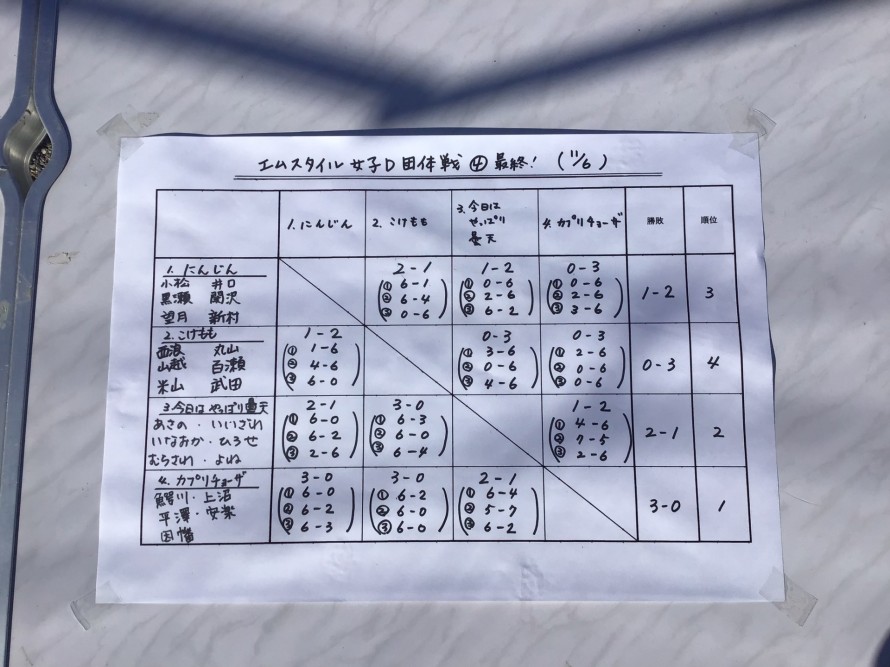 エムスタイル 女子D 団体戦 ④ 最終! (11/6)
1.にんじん 2.こけもも 3.今日は やっぱり 曇天 4.カプリチョーザ 勝敗 順位
1.にんじん 2-1 1-2 0-3
小松 井口 (① 6-1 (① 0-6 (① 0-6
黒瀬 関沢 ② 6-4 ② 2-6 ② 2-6 1-2 3
望月 新村 ③ 0-6) ③ 6-2) ③ 3-6)
2.こけもも 1-2 0-3 0-3
西浪 丸山 (① 1-6 (① 3-6 (① 2-6
山越 百瀬 ② 4-6 ② 0-6 ② 0-6 0-3 4
米山 武田 ③ 6-0) ③ 4-6) ③ 0-6)
3.今日はやっぱり曇天 2-1 3-0 1-2
あさの・いいざわ (① 6-0 (① 6-3 (① 4-6
いなおか・ひろせ ② 6-2 ② 6-0 ② 7-5 2-1 2
むらさわ・よね ③ 2-6) ③ 6-4) ③ 2-6)
4.カプリチョーザ 3-0 3-0 2-1
鰐川・上沼 (① 6-0 (① 6-2 (① 6-4
平澤・安楽 ② 6-2 ② 6-0 ② 5-7 3-0 1
因幡 ③ 6-3) ③ 6-0) ③ 6-2)